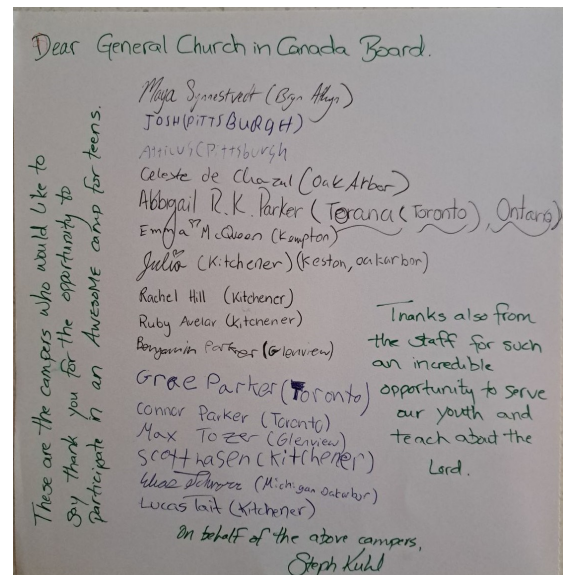 Dear General Church in Canada Board.
These are the campers who would like to
say thank you for the opportunity to
participate in an AWESOME camp for teens.
Maya Synnestvedt (Bryn Athyn)
JOSH (PITTSBURGH)
Atticus (Pittsburgh
Celeste de Chazal (Oak Arbor)
Abbigail R.K. Parker (Terana (Toronto), Ontario)
Emma McQueen (Kempton)
Julia (Kitchener) (Keston, oakarbor)
Rachel Hill (Kitchener)
Ruby Avelar (Kitchener)
Benjamin Parker (Glenview)
Grae Parker (Toronto)
Connor Parker (Toronto)
Max Tozer (Glenview)
Scott hasen (Kitchener)
(Michigan Oakarbor)
Lucas Tait (Kitchener)
Thanks also from
the staff for such
an incredible
opportunity to serve
our youth and
teach about the
Lord.
On behalf of the above campers,
Steph Kuhl